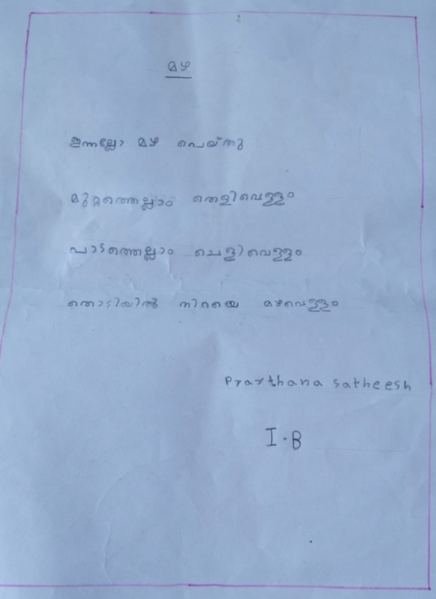 മഴ
ഇന്നല്ലോ മഴ പെയ്തു
മുറ്റത്തെല്ലാം തെളിവെള്ളം
പാടത്തെല്ലാം ചെളിവെള്ളം
തൊടിയിൽ നിറയെ മഴവെള്ളം
Prarthana satheesh
I-B